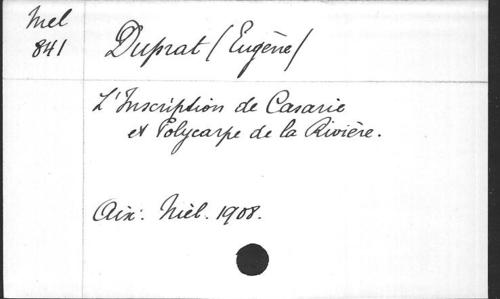 Mel
841
Duprat (Eugène)
L'Inscription de Casarie
et Polycarpe de la Rivière.
Aix: Niel. 1908.